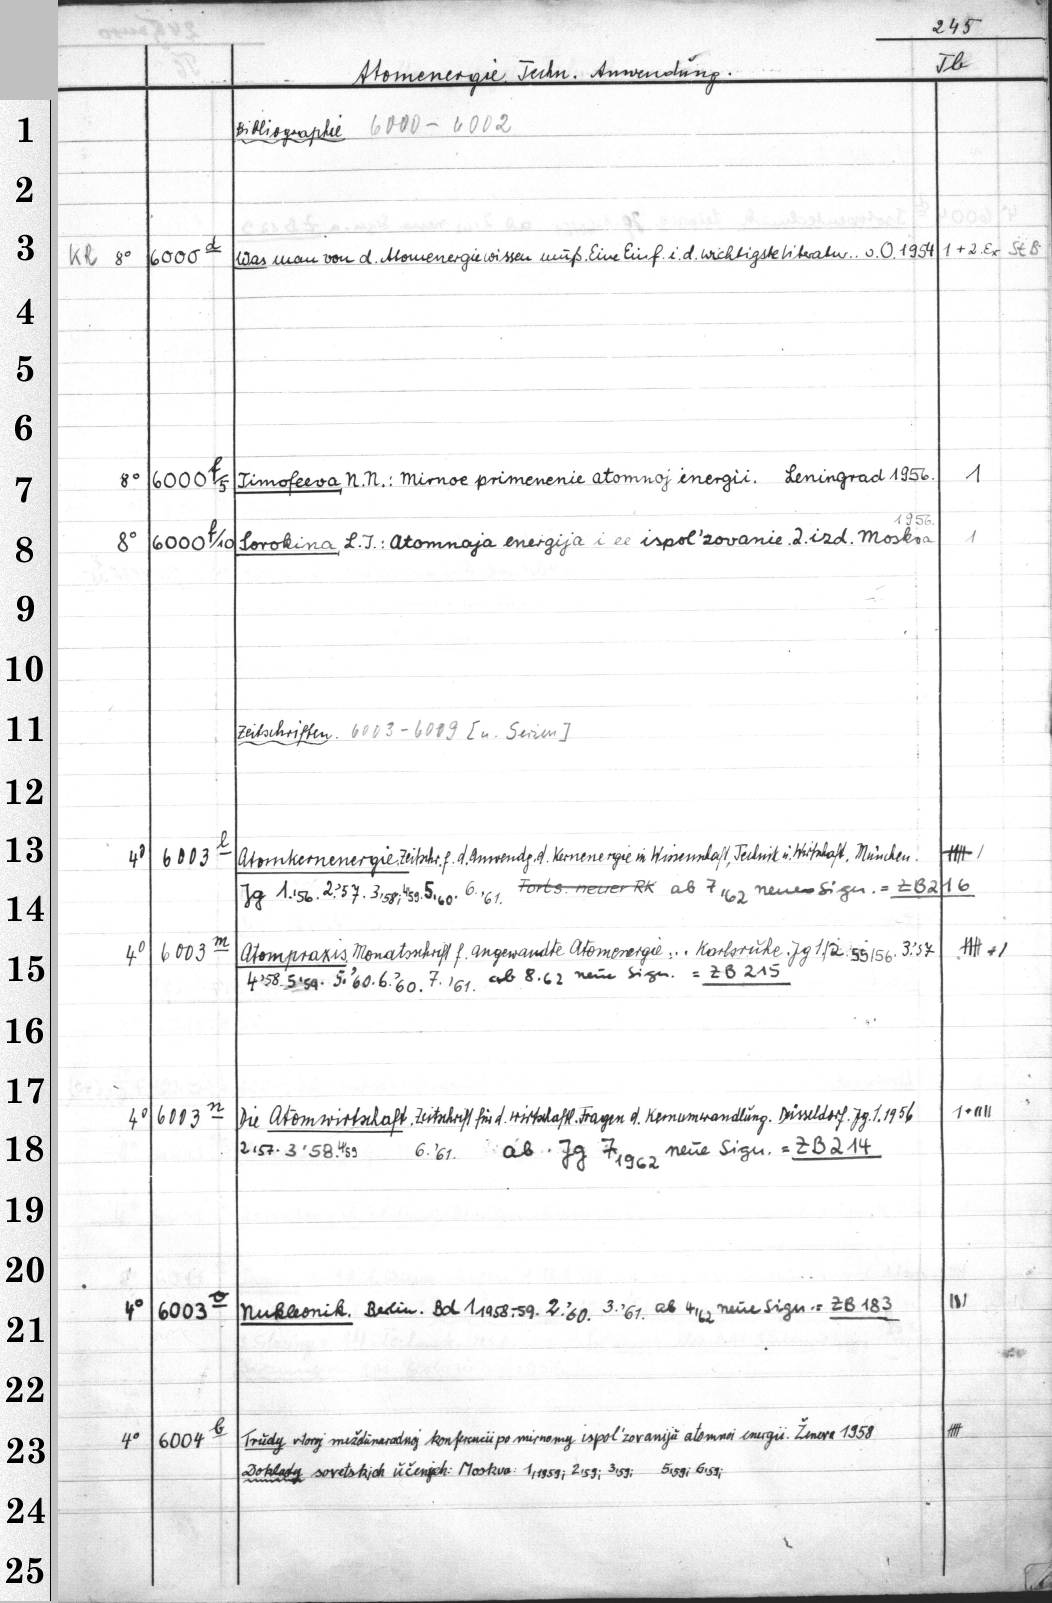 245
Atomenergie, Techn. Anwendung. Tb
1 Bibliographie 6000 - 6002
2
3 KR 8° 6000 d Was man von d. Atomenergie wissen muß. Eine Einf. i. d. wichtigste Literatur.. o.O. 1954 1 + 2. Ex St B
4
5
6
7 8° 6000 f/5 Timofeeva, N.N.: Mirnoe primenenie atomnoj ènergii. Leningrad 1956. 1
1956.
8 8° 6000 f/10 Sorokina, L.I.: Atomnaja energija i ee ispol'zovanie. 2. izd. Moskva 1
9
10
11 Zeitschriften. 6003 - 6009 [u. Serien]
12
13 4° 6003 l Atomkernenergie. Zeitschr. f. d. Anwendg. d. Kernenergie in Wissenschaft, Technik u. Wirtschaft. München.
14 Jg 1.'56. 2.'57. 3,'58; 4/59. 5,'60. 6.'61. Forts. neuer RK ab 7,'62 neue Sign. = ZB 216
4° 6003 m Atompraxis, Monatsschrift f. angewandte Atomenergie... Karlsruhe. Jg 1/2.55/56. 3.'57
15 4.'58. 5.'59. 5.'60. 6.'60. 7.'61. ab 8.62 neue Sign. = ZB 215
16
17
4° 6003 n Die Atomwirtschaft. Zeitschrift für d. wirtschaftl. Fragen d. Kernumwandlung. Düsseldorf. Jg. 1. 1956
18 2'57. 3'58. 4/59 6.'61. ab. Jg 7,1962 neue Sign. = ZB 214
19
20
21 4° 6003 o Nukleonik. Berlin. Bd 1 1958-59. 2.'60. 3.'61. ab 4,'62 neue Sign. = ZB 183
22
23 4° 6004 b Trudy vtoroj meždunarodnoj konferencii po mirnomu ispol'zovaniju atomnoi energii. Ženeva 1958
Doklady sovetskich učenych: Moskva: 1,1959; 2,59; 3,59; 5,59; 6,59;
24
25